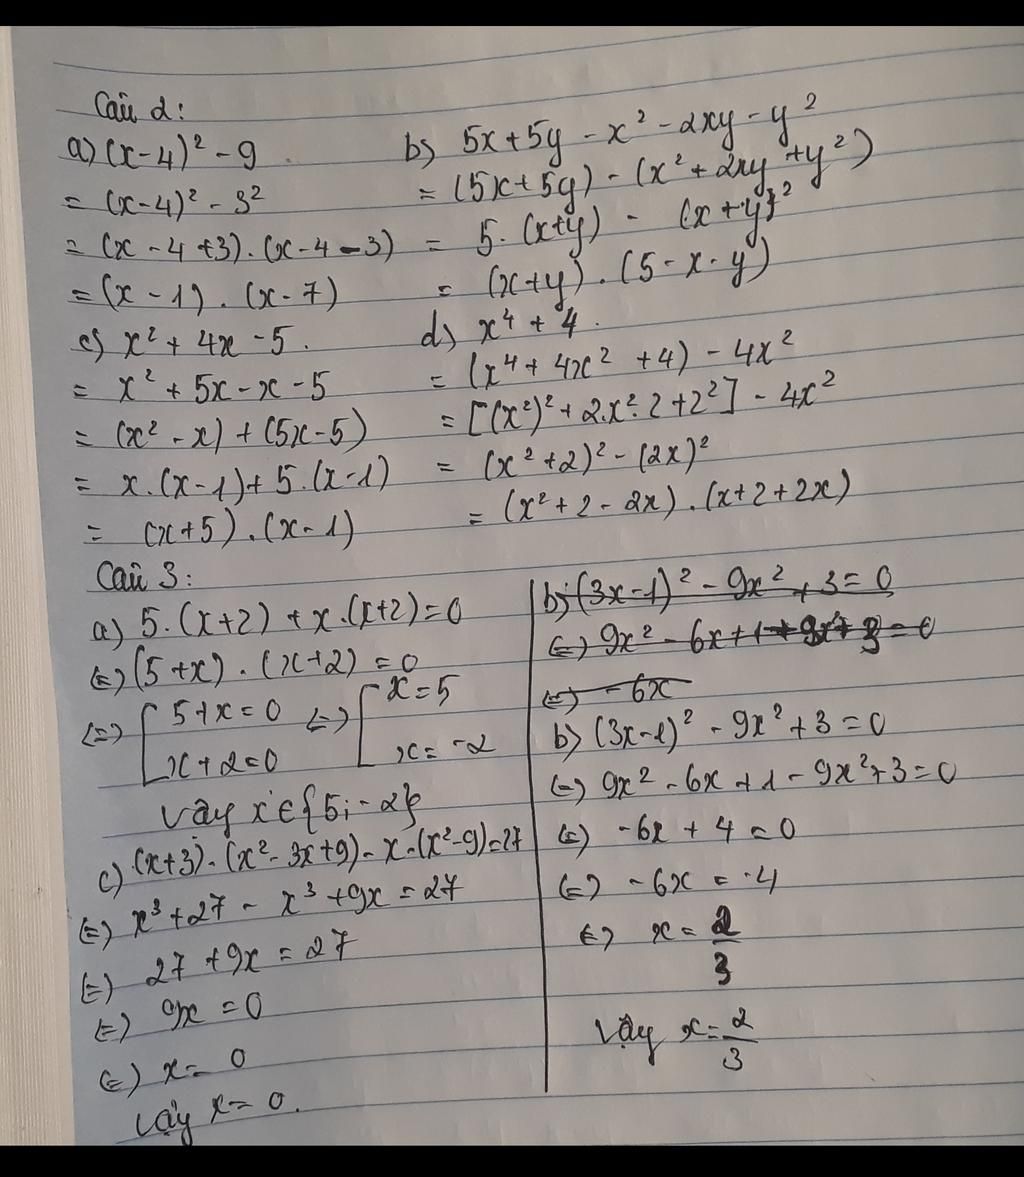 Câu 2:
a) (x-4)² - 9
= (x-4)² - 3²
= (x - 4 + 3) . (x - 4 - 3)
= (x - 1) . (x - 7)
b) 5x + 5y - x² - 2xy - y²
= (5x + 5y) - (x² + 2xy + y²)
= 5 . (x+y) - (x + y)²
= (x+y) . (5 - x - y)
c) x² + 4x - 5.
= x² + 5x - x - 5
= (x² - x) + (5x - 5)
= x . (x - 1) + 5 . (x - 1)
= (x + 5) . (x - 1)
d) x⁴ + 4.
= (x⁴ + 4x² + 4) - 4x²
= [(x²)² + 2.x².2 + 2²] - 4x²
= (x² + 2)² - (2x)²
= (x² + 2 - 2x) . (x + 2 + 2x)
Câu 3:
a) 5 . (x+2) + x . (x+2) = 0
⇔ (5 + x) . (x+2) = 0
⇔ [ 5 + x = 0 ⇔ [ x = 5
x + 2 = 0 x = -2
Vậy x ∈ {5; -2}
c) (x+3) . (x² - 3x + 9) - x . (x² - 9) = 27
⇔ x³ + 27 - x³ + 9x = 27
⇔ 27 + 9x = 27
⇔ 9x = 0
⇔ x = 0
Vậy x = 0.
b) (3x - 1)² - 9x² + 3 = 0
⇔ 9x² - 6x + 1 + 9x² + 3 = 0
⇔ -6x
b) (3x - 1)² - 9x² + 3 = 0
⇔ 9x² - 6x + 1 - 9x² + 3 = 0
⇔ -6x + 4 = 0
⇔ -6x = -4
⇔ x = 2/3
Vậy x = 2/3